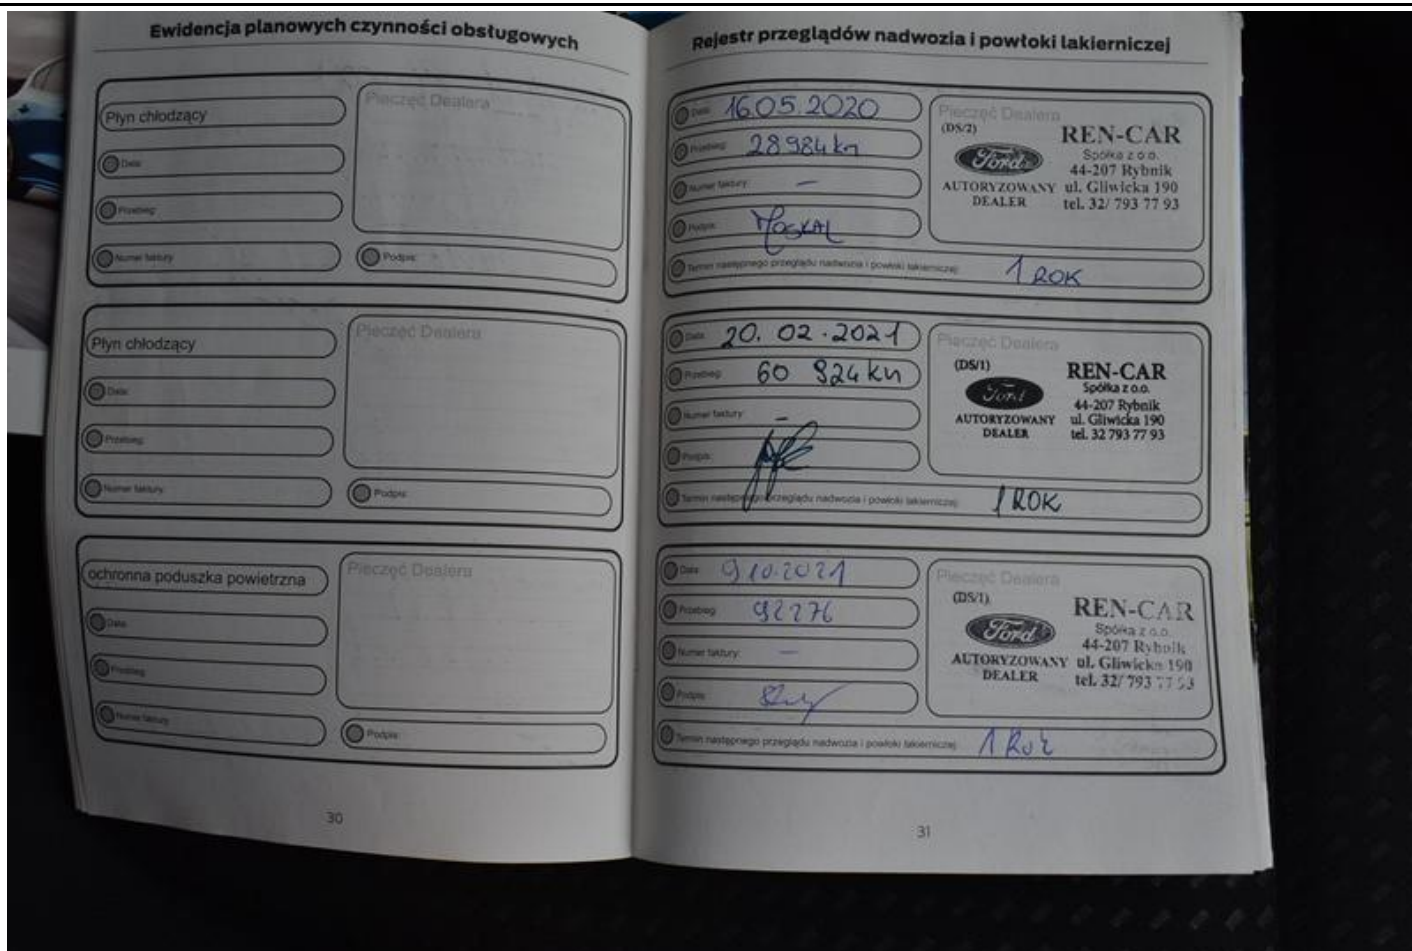 Ewidencja planowych czynności obsługowych
Płyn chłodzący
Pieczęć Dealera
Data:
Przebieg:
Numer faktury:
Podpis:
Płyn chłodzący
Pieczęć Dealera
Data:
Przebieg:
Numer faktury:
Podpis:
ochronna poduszka powietrzna
Pieczęć Dealera
Data:
Przebieg:
Numer faktury:
Podpis:
30
Rejestr przeglądów nadwozia i powłoki lakierniczej
Data: 16.05.2020
Przebieg: 28984 km
Numer faktury: –
Podpis: MOSKAL
Pieczęć Dealera
(DS/2)
Ford
AUTORYZOWANY
DEALER
REN-CAR
Spółka z o.o.
44-207 Rybnik
ul. Gliwicka 190
tel. 32/ 793 77 93
Termin następnego przeglądu nadwozia i powłoki lakierniczej: 1 ROK
Data: 20.02.2021
Przebieg: 60 924 km
Numer faktury: –
Podpis:
Pieczęć Dealera
(DS/1)
Ford
AUTORYZOWANY
DEALER
REN-CAR
Spółka z o.o.
44-207 Rybnik
ul. Gliwicka 190
tel. 32 793 77 93
Termin następnego przeglądu nadwozia i powłoki lakierniczej: 1 ROK
Data: 9.10.2021
Przebieg: 92276
Numer faktury: –
Podpis:
Pieczęć Dealera
(DS/1)
Ford
AUTORYZOWANY
DEALER
REN-CAR
Spółka z o.o.
44-207 Rybnik
ul. Gliwicka 190
tel. 32/ 793 77 93
Termin następnego przeglądu nadwozia i powłoki lakierniczej: 1 Rok
31